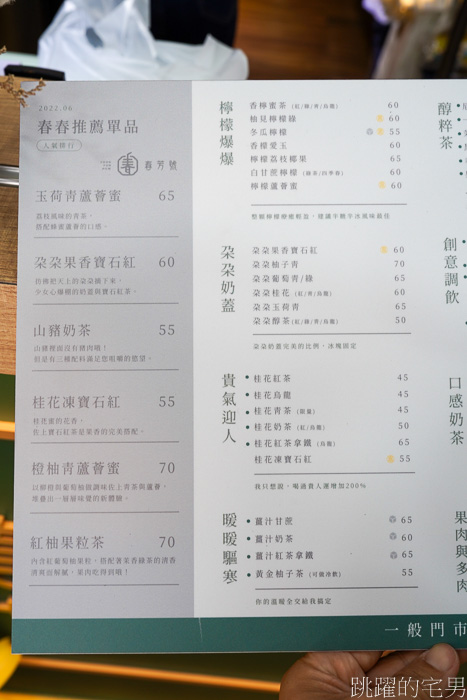 2022.06
春春推薦單品
人氣排行
春 春芳號
玉荷青蘆薈蜜 65
荔枝風味的青茶，
搭配蜂蜜蘆薈的口感。
朵朵果香寶石紅 60
彷彿把天上的朵朵摘下來，
少女心爆棚的奶蓋與寶石紅茶。
山豬奶茶 55
山豬裡面沒有豬肉唷！
但是有三種配料滿足您咀嚼的慾望。
桂花凍寶石紅 55
桂花蜜的花香，
佐上寶石紅茶是果香的完美搭配。
橙柚青蘆薈蜜 70
以柳橙與葡萄柚做調味佐上青茶與蘆薈，
堆疊出一層層味覺的新體驗。
紅柚果粒茶 70
內含紅葡萄柚果粒，搭配著果香綠茶的清香
清爽而解膩，果肉吃得到唷！
檸檬爆爆
香檸蜜茶 (紅/綠/青/烏龍) 60
柚見檸檬綠 60
冬瓜檸檬 55
香檸愛玉 60
檸檬荔枝椰果 65
白甘蔗檸檬 (綠茶/四季春) 60
檸檬蘆薈蜜 60
整顆檸檬療癒輕盈，建議半糖半冰風味最佳
朵朵奶蓋
朵朵果香寶石紅 60
朵朵柚子青 70
朵朵葡萄青/綠 65
朵朵桂花 (紅/青/烏龍) 60
朵朵玉荷青 65
朵朵醇茶 (紅/綠/青/烏龍) 50
朵朵奶蓋完美的比例，冰塊固定
貴氣迎人
桂花紅茶 45
桂花烏龍 45
桂花青茶 (限量) 45
桂花奶茶 (紅/烏龍) 50
桂花紅茶拿鐵 (烏龍) 65
桂花凍寶石紅 55
我只想說，喝過貴人運增加200%
暖暖驅寒
薑汁甘蔗 65
薑汁奶茶 60
薑汁紅茶拿鐵 65
黃金柚子茶 (可做冷飲) 55
你的溫暖全交給我搞定
醇粹茶
創意調飲
口感奶茶
果肉與多肉
一般門市
跳躍的宅男